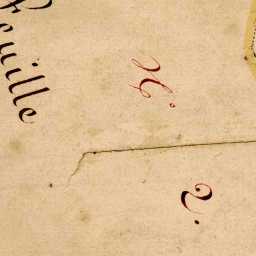 Feuille
N°
2.